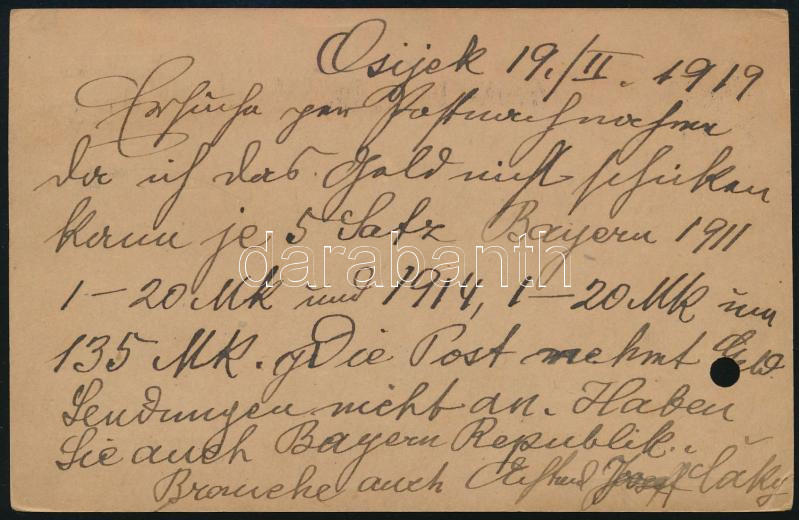 Osijek 19./II. 1919
Ersuche per Postnachnahme
da ich das Geld nicht schicken
kann je 5 Satz Bayern 1911
darabanth
1–20 Mk und 1914, 1–20 MK um
135 MK. Die Post nehmt Geld
Sendungen nicht an. Haben
Sie auch Bayern Republik.
Brauche auch Čáky